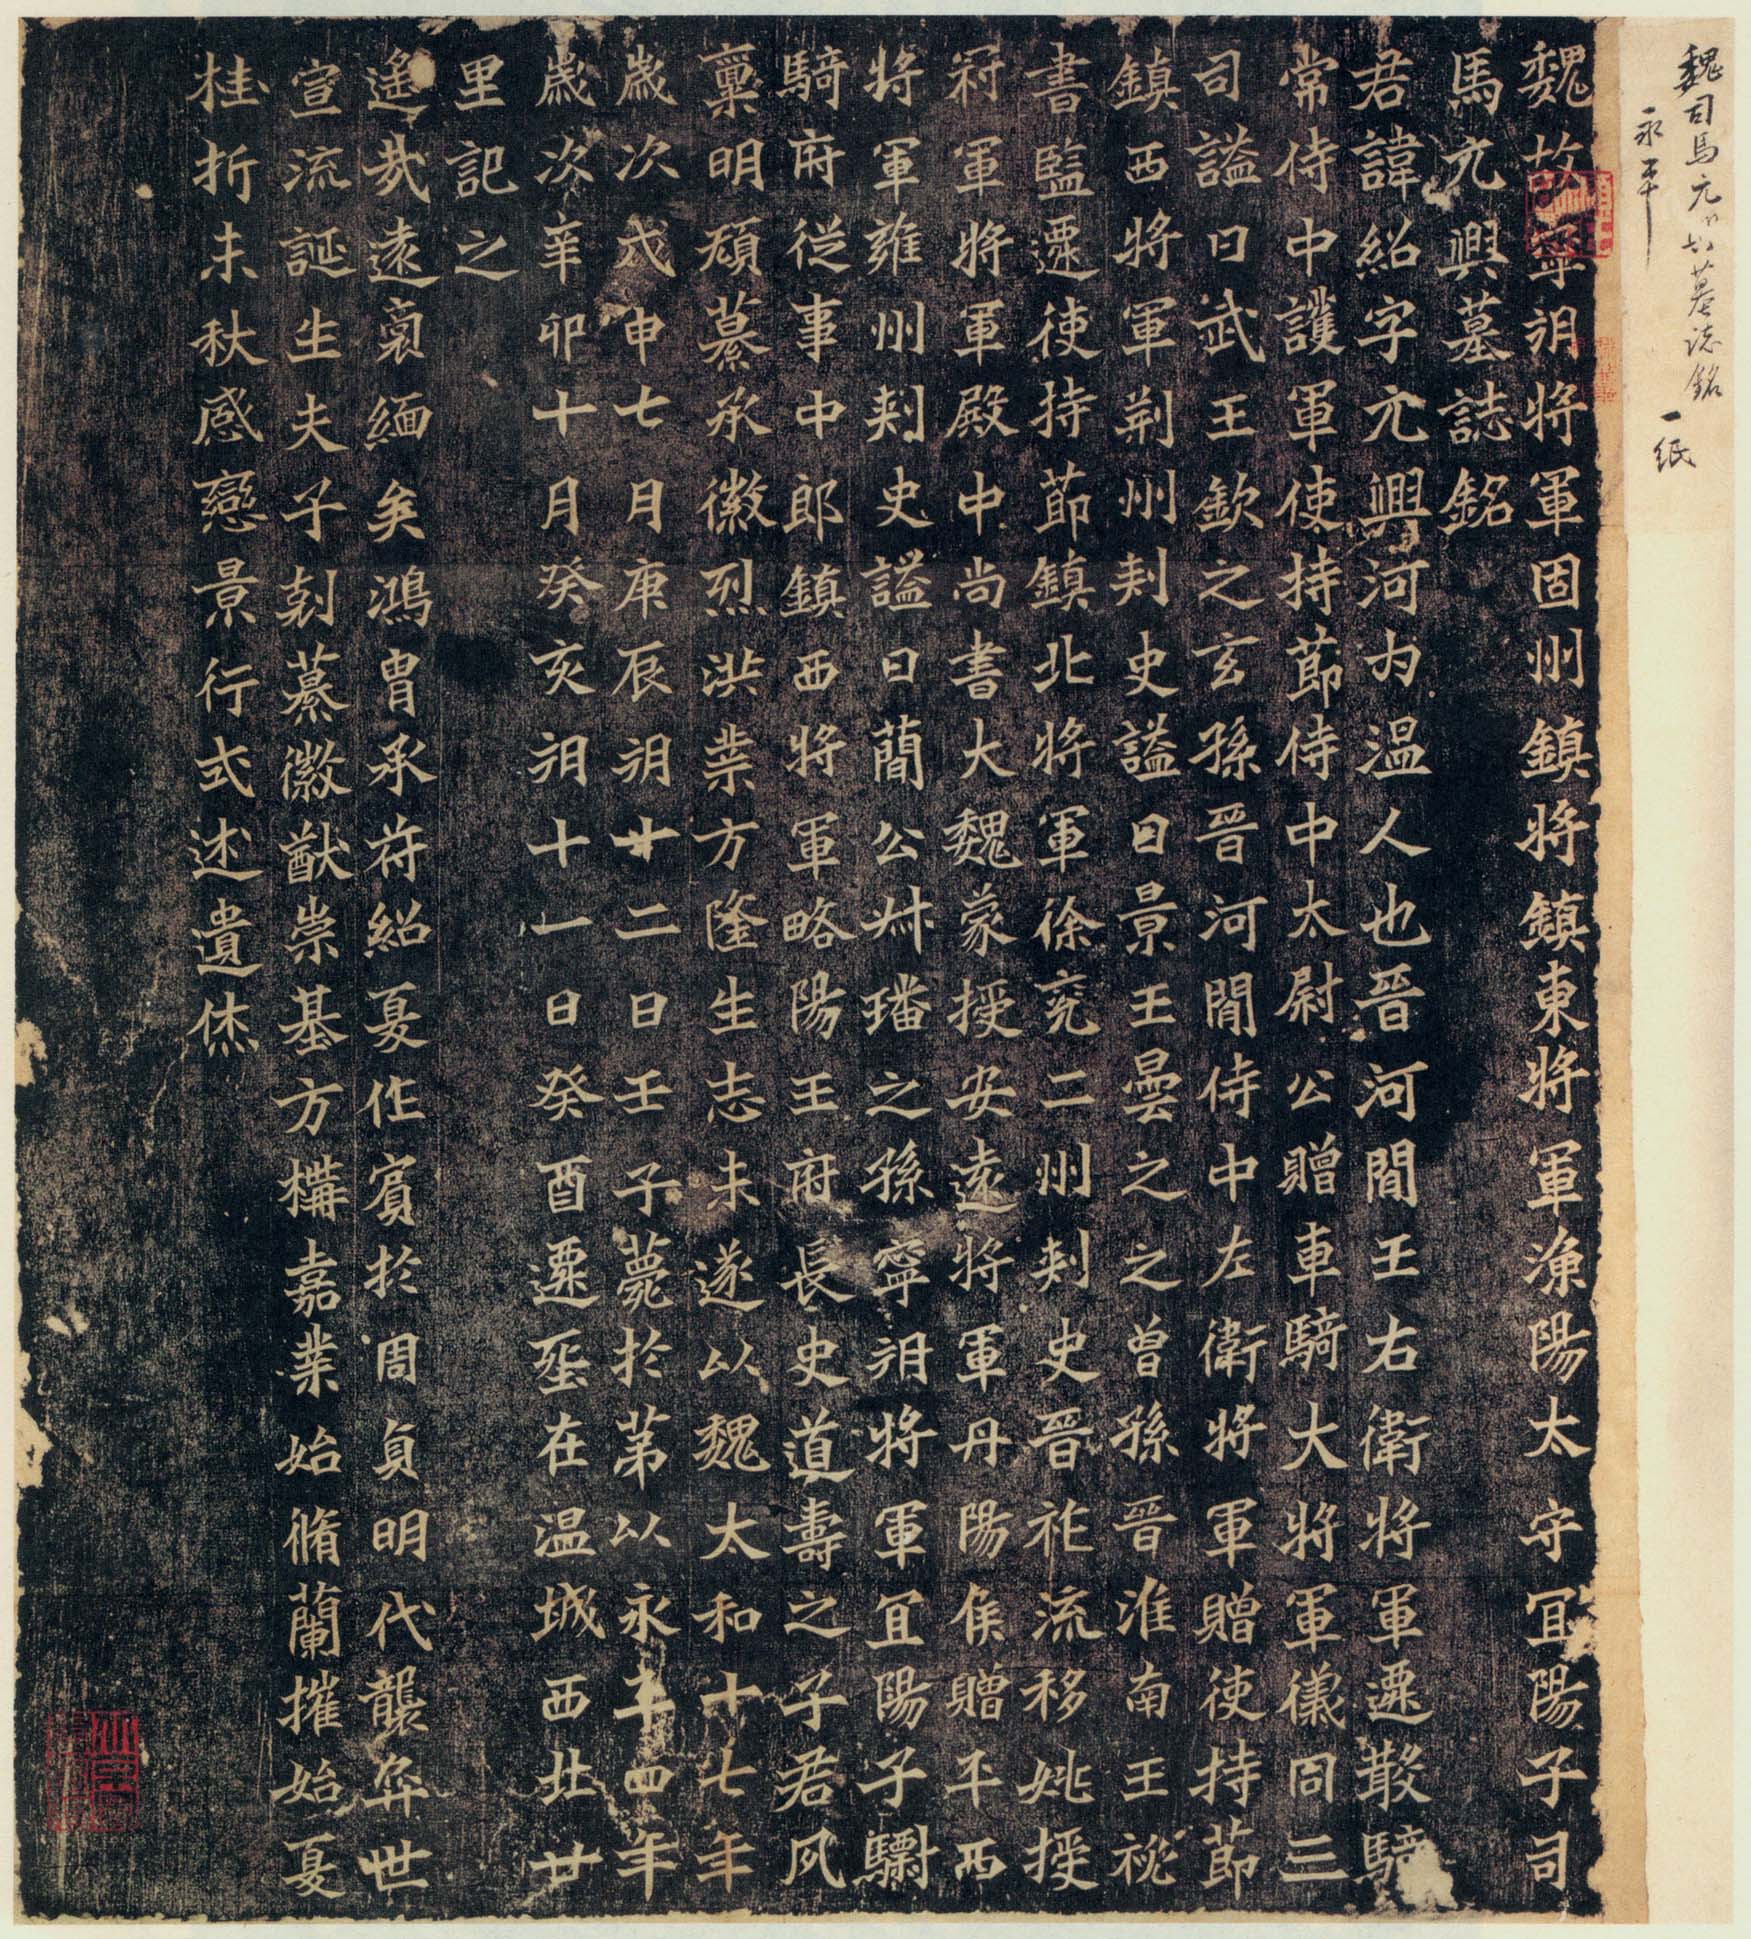 魏司馬元興墓誌銘
永平
一紙
魏故寧朔將軍固州鎮將鎮東將軍漁陽太守宜陽子司
馬元興墓誌銘
君諱紹字元興河内温人也晉河間王右衛將軍遷散騎
常侍中護軍使持節侍中太尉公贈車騎大將軍儀同三
司謚曰武王欽之玄孫晉河間侍中左衛將軍贈使持節
鎮西將軍荊州刾史謚曰景王曇之之曾孫晉淮南王祕
書監遷使持節鎮北將軍徐兖二州刾史晉祚流移姚授
冠軍將軍殿中尚書大魏蒙授安遠將軍丹陽侯贈平西
將軍雍州刾史謚曰蕳公叔璠之孫寧朔將軍宜陽子驃
騎府從事中郎鎮西將軍略陽王府長史道壽之子君夙
稟明頑纂承徽烈洪業方隆生志未遂以魏太和十七年
歲次戊申七月庚辰朔廿二日壬子薨於第以永平四年
歲次辛卯十月癸亥朔十一日癸酉遷塟在温城西北廿
里記之
遙哉遠裔緬矣鴻胄承苻紹夏作賓於周貞明代襲弈世
宣流誕生夫子剋纂徽猷崇基方構嘉業始脩蘭摧始夏
桂折未秋感戀景行式述遺烋